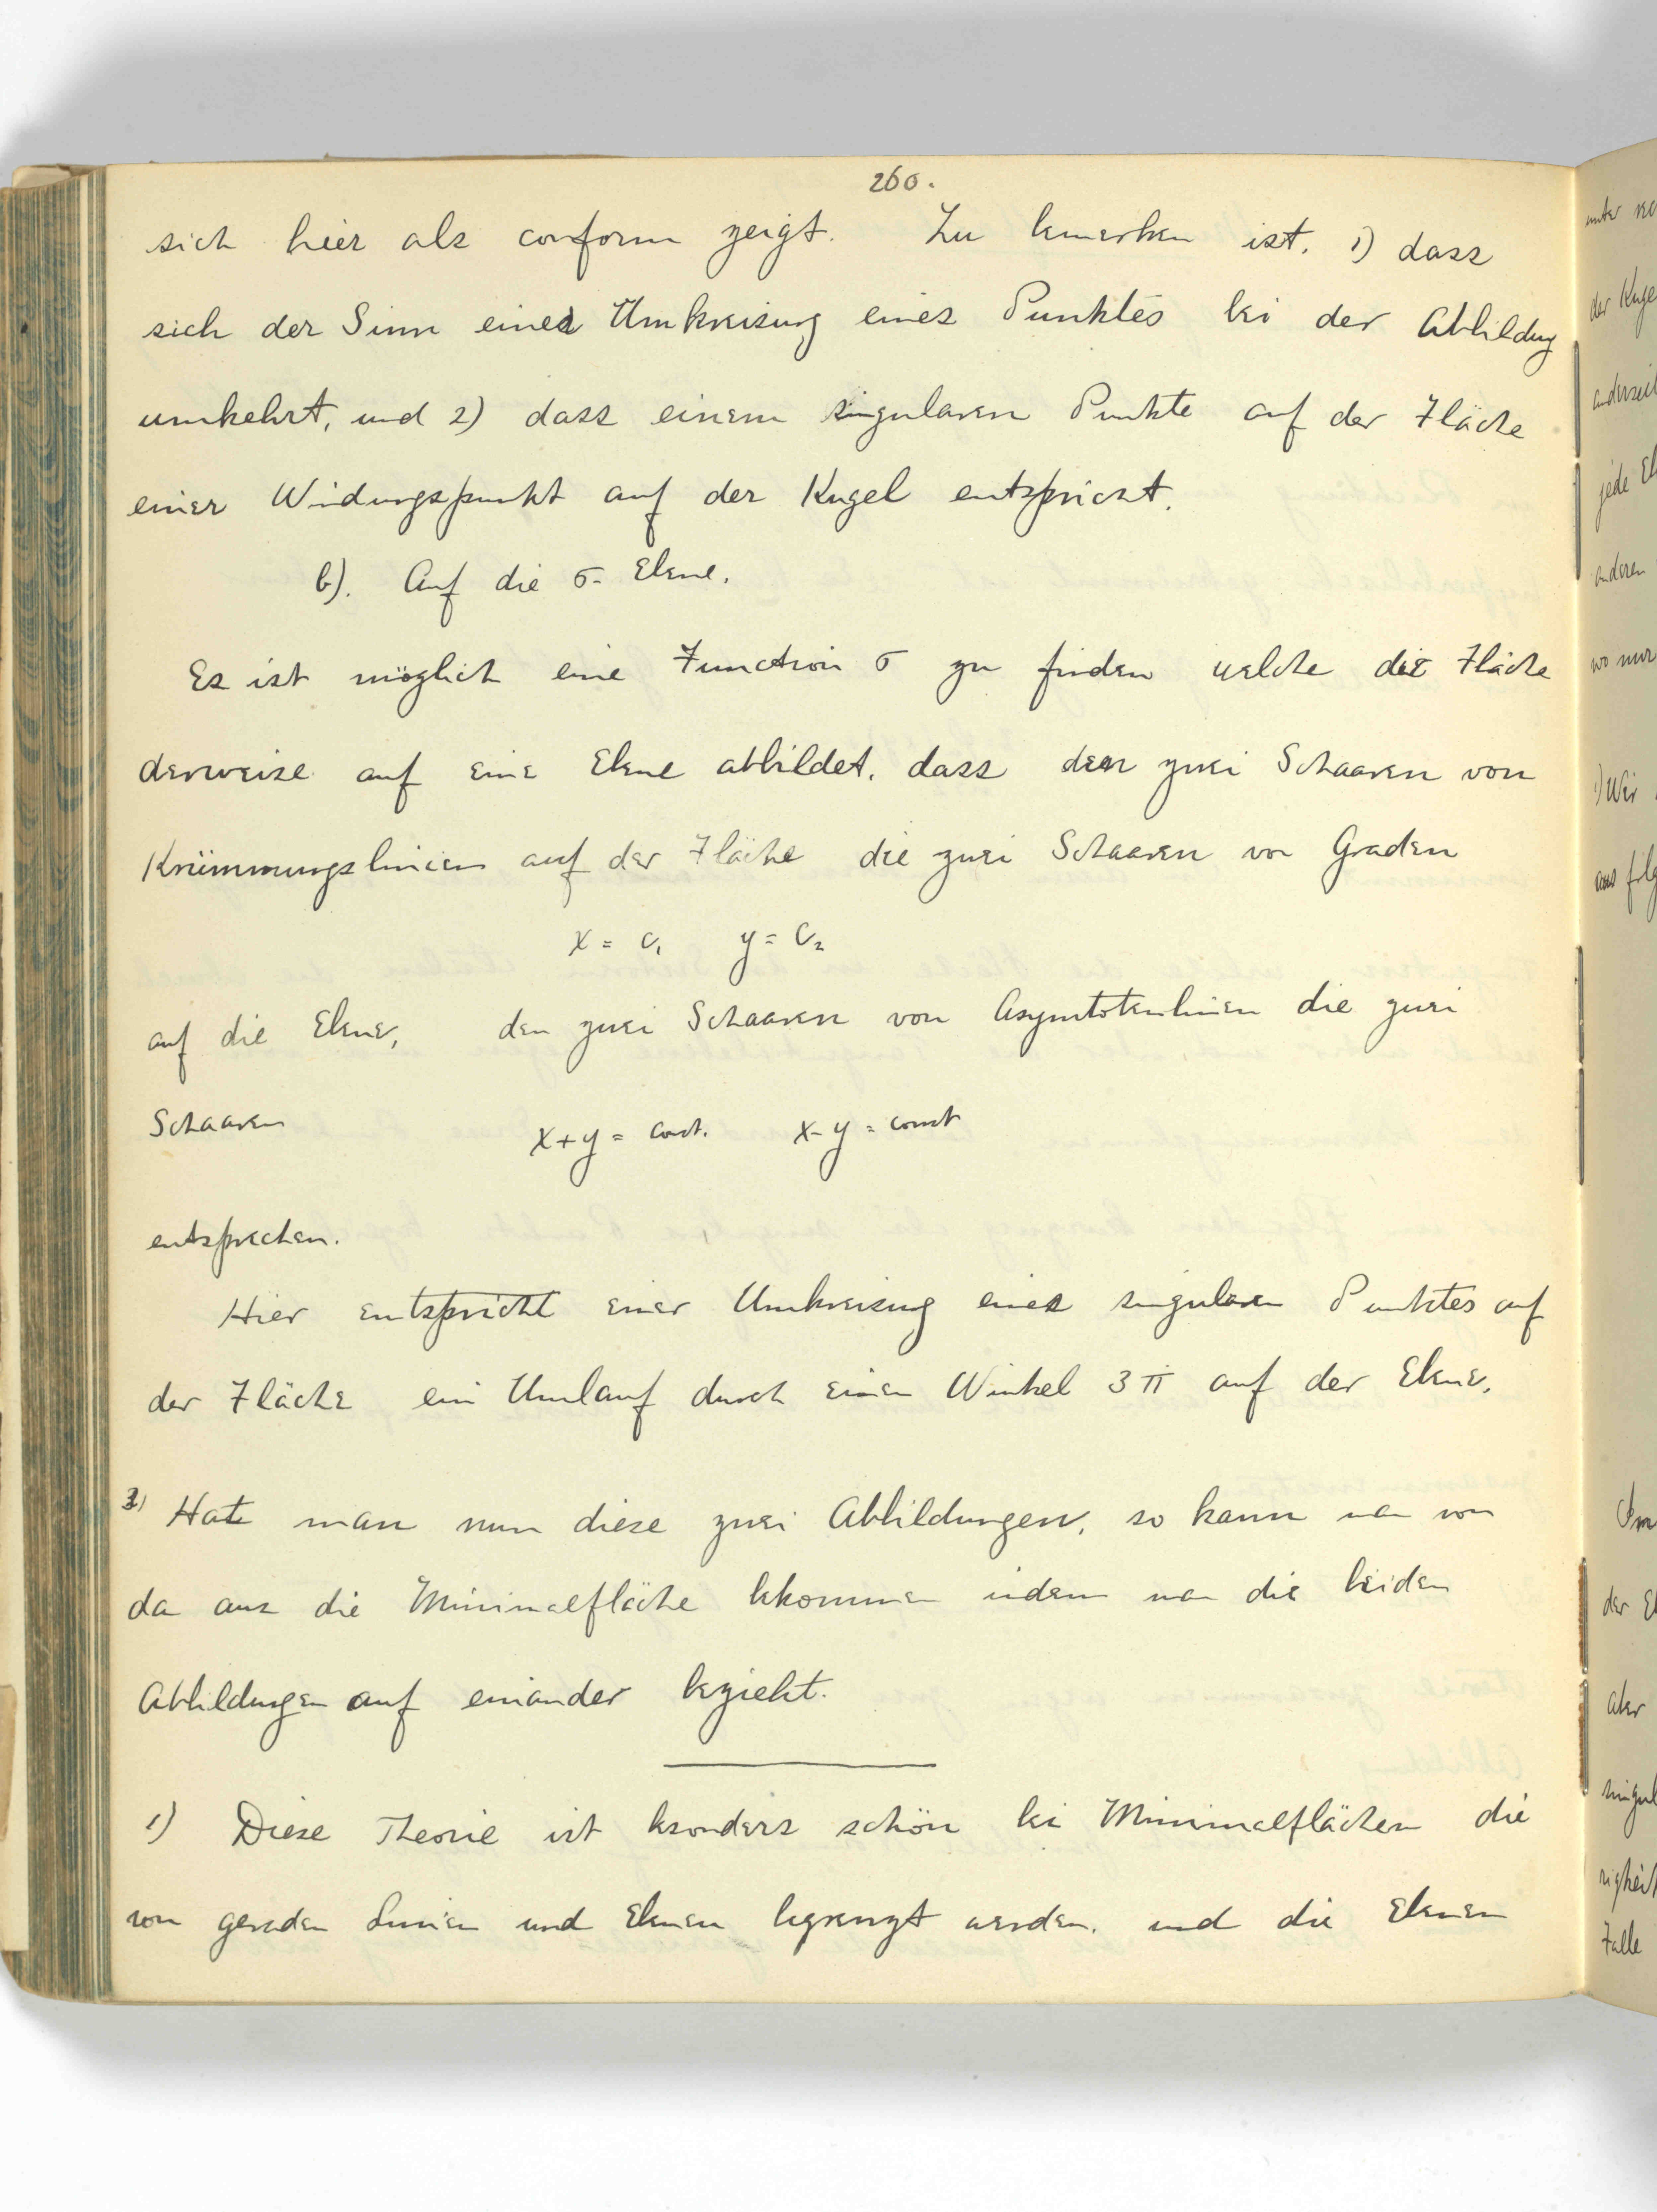 260.
sich hier als conform zeigt. Zu bemerken ist, 1) dass
sich der Sinn einer Umkreisung eines Punktes bei der Abbildung
umkehrt, und 2) dass einem singularen Punkte auf der Fläche
einer Windungspunkt auf der Kugel entspricht.
b). Auf die σ-Ebene.
Es ist möglich eine Function σ zu finden welche die Fläche
derweise auf eine Ebene abbildet, dass den zwei Schaaren von
Krümmungslinien auf der Fläche die zwei Schaaren von Graden
x = c₁ y = c₂
auf die Ebene, den zwei Schaaren von Asymtotenlinien die zwei
Schaaren x+y = const. x-y = const
entsprechen.
Hier entspricht einer Umkreisung eines singularen Punktes auf
der Fläche ein Umlauf durch einen Winkel 3π auf der Ebene.
3) Hat man nun diese zwei Abbildungen, so kann man von
da aus die Minimalfläche bekommen indem man die beiden
Abbildungen auf einander bezieht.
1) Diese Theorie ist besonders schön bei Minimalflächen die
von geraden Linien und Ebenen begrenzt werden, und die Ebenen
unter
der Kuge
anderseit
jede El
anderen
wo nur
1) Wir
aus folg
der El
aber
singul
righeit
Falle